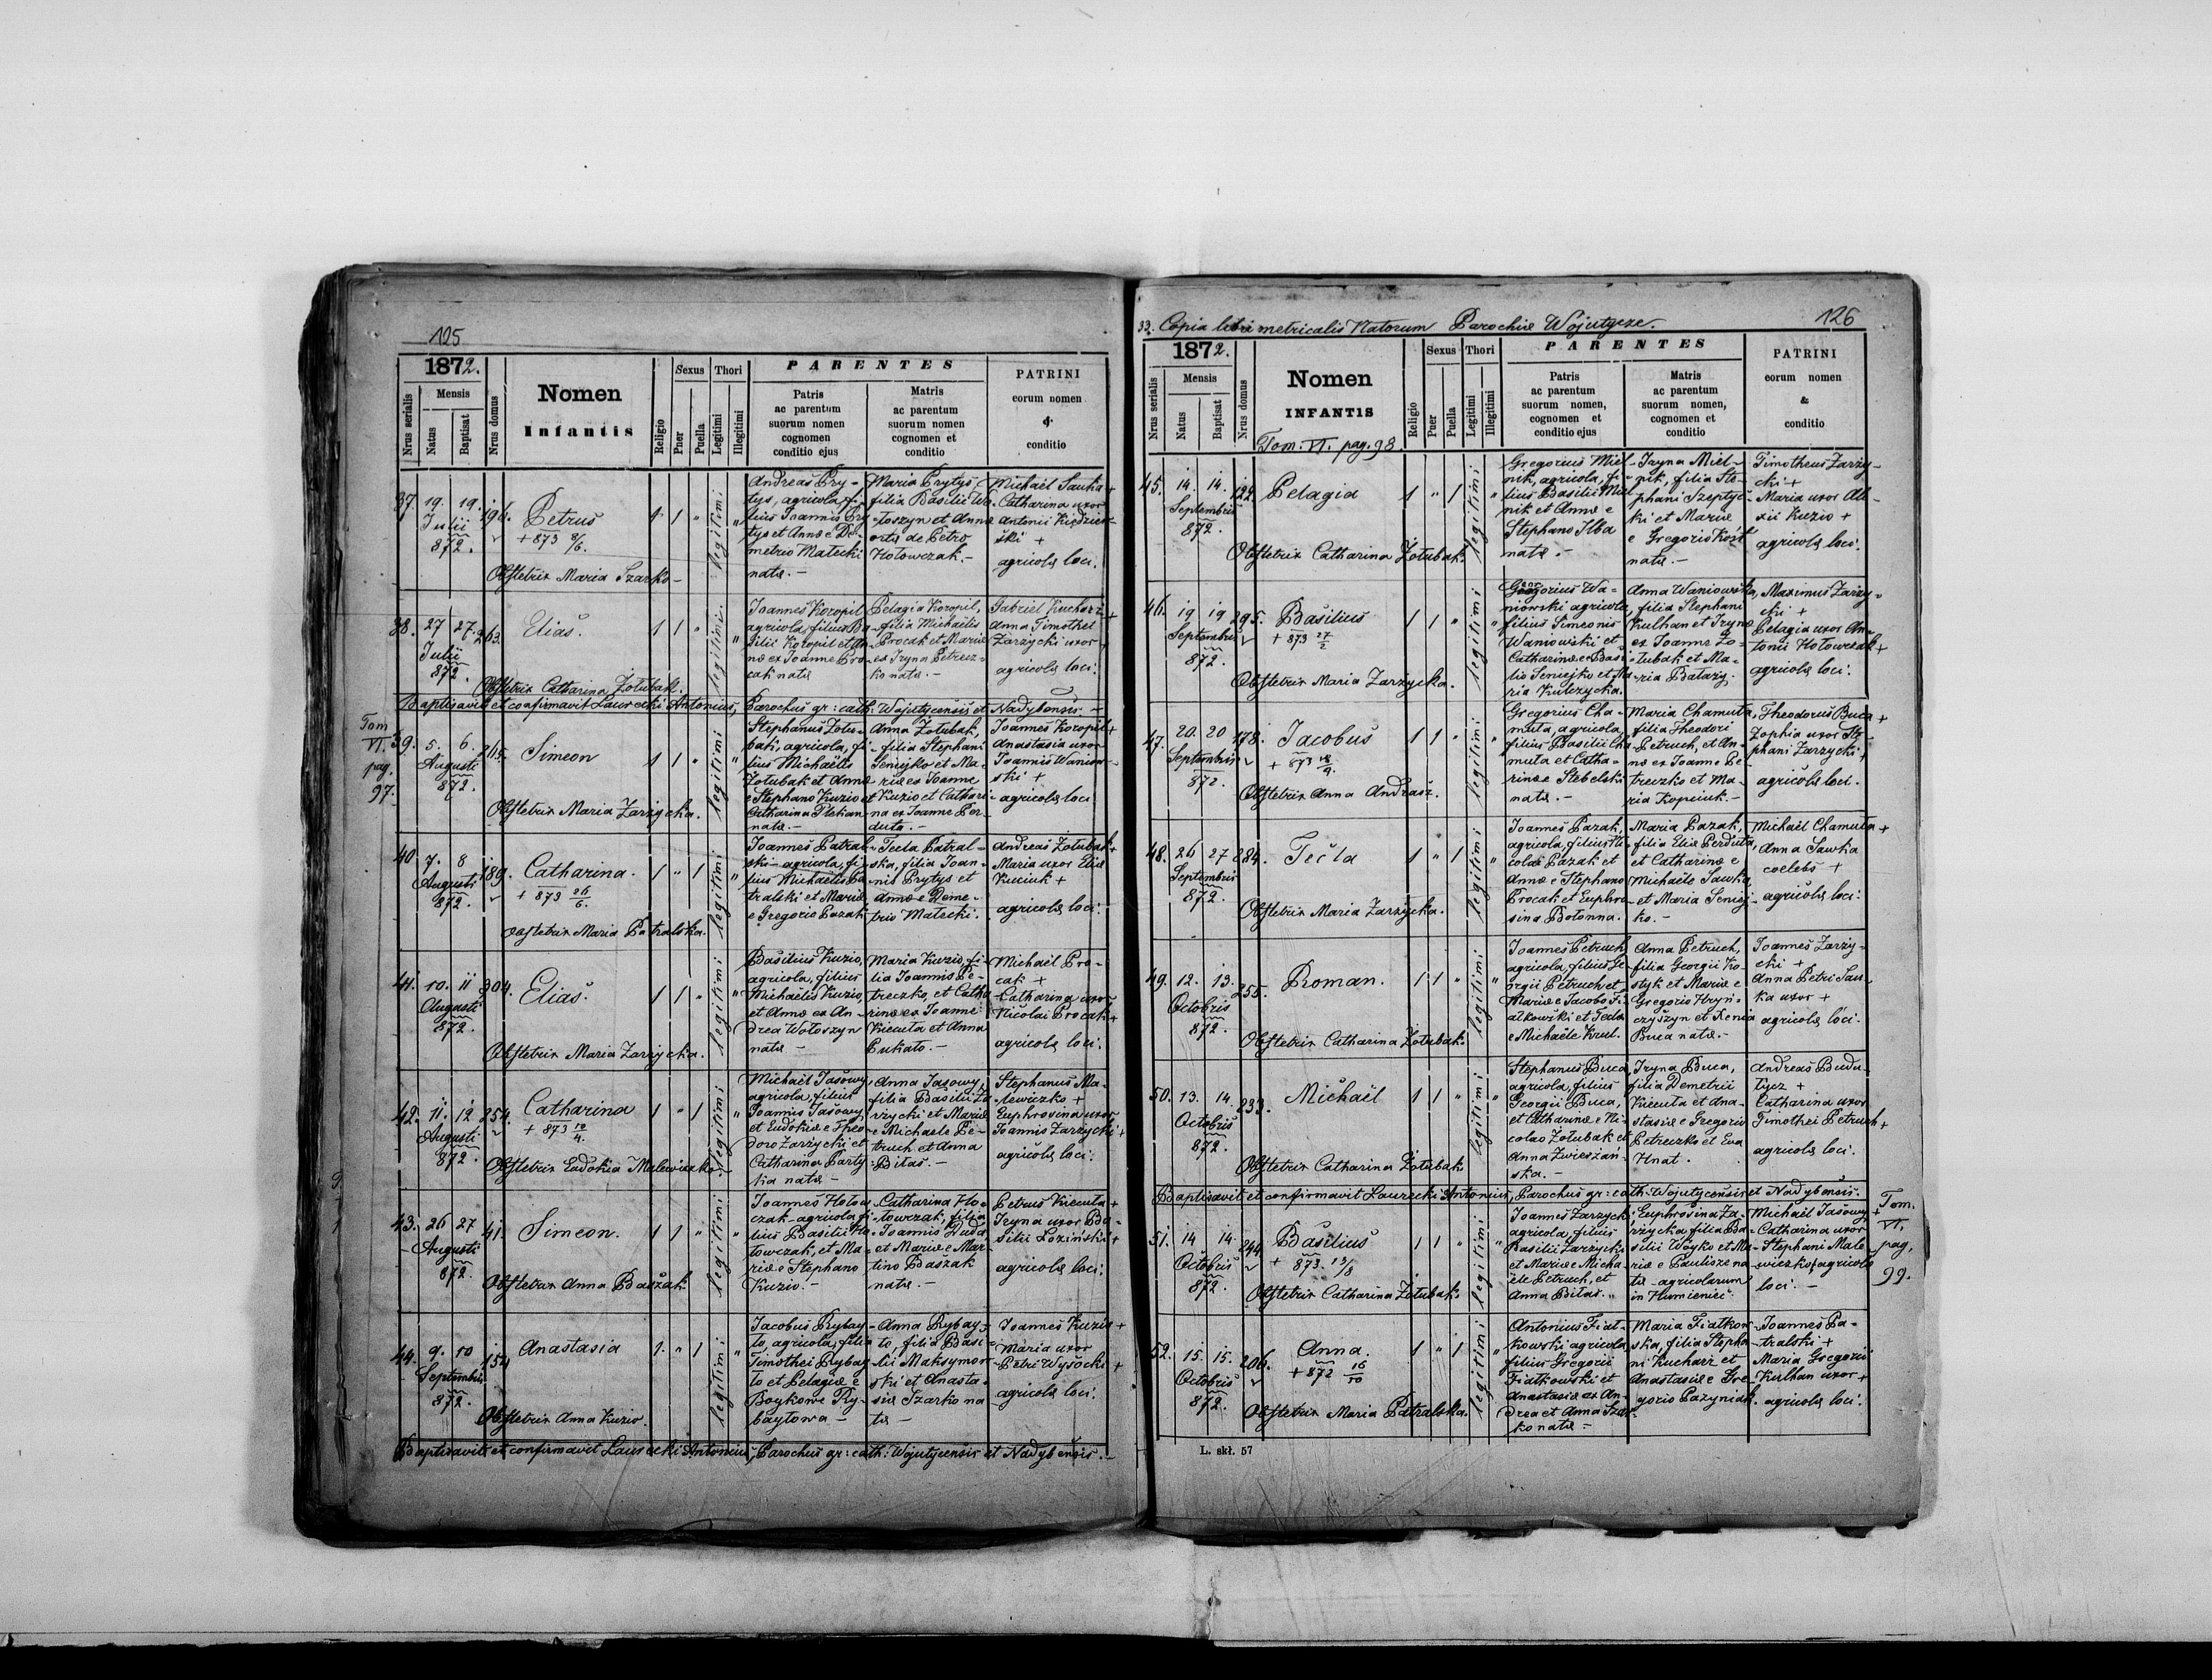 125
1872.
Nrus serialis
Mensis
Natus
Baptisat
Nrus domus
Nomen
Infantis
Religio
Sexus
Puer
Puella
Thori
Legitimi
Illegitimi
PARENTES
Patris
ac parentum
suorum nomen
cognomen
conditio ejus
Matris
ac parentum
suorum nomen
cognomen et
conditio
PATRINI
eorum nomen
&
conditio
37. 19. 19. 196. Petrus 1. 1 " legitimi "
Julii
872.
+ 873 8/6.
Obstetrix Maria Szarko
Andreas Pry-
tys, agricola, fi-
lius Joannis Pry-
tys et Annæ e De-
metrio Matecki
natæ.-
Maria Prytys,
filia Basilii Wo-
toszyn et Annæ
ortæ de Petro
Hotowczak.-
Michaël Sauka +
Catharina uxor
Antonii Kiędzier-
ski +
agricolæ loci.
38. 27 27. 263. Elias. 1 1 " legitimi. "
Julii
872.
Obstetrix Catharina Zotubak.
Joannes Koropil
agricola, filius Ba-
silii Koropil et An-
næ ex Joanne Pro-
cak natæ
Pelagia Koropil,
filia Michaëlis
Procak et Mariæ
ex Iryna Petrecz-
ko natæ.-
Gabriel Kucharz +
Anna Timothei
Zarzycki uxor +
agricolæ loci.
Baptisavit et confirmavit Laurecki Antonius, Parochus gr: cath: Wojutycensis et Nadybensis -
Tom
VI.
pag.
97.
39. 5. 6. 265. Simeon 1 1 " legitimi "
Augusti
872.
Obstetrix Maria Zarzycka.
Stephanus Zotu-
bak, agricola, fi-
lius Michaëlis
Zotubak et Annæ
e Stephano Kuzio et
Catharina Plekan
natæ.-
Anna Zotubak,
filia Stephani
Seniejko et Ma-
riæ ex Joanne
Kuzio et Cathari-
na ex Joanne Per-
duta.-
Joannes Koropil +
Anastasia uxor
Joannis Waniow-
ski +
agricolæ loci
40. 7. 8 189. Catharina. 1 " 1 legitimi "
Augusti
872.
+ 873 26/6.
Obstetrix Maria Patralska.
Joannes Patral-
ski - agricola, fi-
lius Michaëlis Pa-
tralski et Mariæ
e Gregorio Pazak
Tecla Patral-
ska, filia Joan-
nis Prytys et
Annæ e Deme-
trio Matecki.
Andreas Zotubak +
Maria uxor Eliæ
Kuciuk +
agricolæ loci.
41. 10. 11 304. Elias. 1 1 " legitimi "
Augusti
872.
Obstetrix Maria Zarzycka.
Basilius Kuzio,
agricola, filius
Michaëlis Kuzio,
et Annæ ex An-
drea Wotoszyn
natæ -
Maria Kuzio, fi-
lia Joannis Pe-
treczko, et Catha-
rinæ ex Joanne
Kiecuta et Anna
Pukato.-
Michaël Pro-
cak +
Catharina uxor
Nicolai Procak +
agricolæ loci.
42. 11. 12 254. Catharina 1 " 1 legitimi "
Augusti
872.
+ 873 10/4.
Obstetrix Eudokia Malewiczko
Michaël Jasowy,
agricola, filius
Joannis Jasowy
et Eudokiæ e Theo-
doro Zarzycki et
Catharina Party-
ka natæ -
Anna Jasowy,
filia Basilii Za-
rzycki et Mariæ
e Michaele Pe-
truch et Anna
Bitas.-
Stephanus Ma-
lewiczko +
Euphrosina uxor
Joannis Zarzycki +
agricolæ loci.
43. 26 27 41. Simeon. 1 1 " legitimi "
Augusti
872.
Obstetrix Anna Baszak
Joannes Hotow-
czak - agricola fi-
lius Basilii Ho-
towczak, et Ma-
riæ e Stephano
Kuzio.-
Catharina Ho-
towczak, filia
Joannis Duda
et Mariæ e Mar-
tino Baszak
natæ.-
Petrus Kiecuta +
Iryna uxor Ba-
silii Lozinska +
agricolæ loci.
44. 9. 10 154 Anastasia 1. " 1 legitimi "
Septembris
872.
Obstetrix Anna Kuzio.
Jacobus Rybay-
to, agricola, filiu
Timothei Rybay-
to et Pelagiæ e
Boykowe Ry-
baytowa -
Anna Rybay-
to, filia Basi-
lii Maksymow-
ski et Anasta-
siæ Szarko na
tæ -
Joannes Kuzio +
Maria uxor
Petri Wysocki +
agricolæ loci.
Baptisavit et confirmavit Laurecki Antonius, Parochus gr: cath: Wojutycensis et Nadybensis.-
33. Copia libri metricalis Natorum Parochiæ Wojutycze.
126
1872.
Nrus serialis
Mensis
Natus
Baptisat
Nrus domus
Nomen
INFANTIS
Tom: VI. pag. 98
Religio
Sexus
Puer
Puella
Thori
Legitimi
Illegitimi
PARENTES
Patris
ac parentum
suorum nomen,
cognomen et
conditio ejus
Matris
ac parentum
suorum nomen,
cognomen et
conditio
PATRINI
eorum nomen
&
conditio
45. 14. 14. 122. Pelagia 1 " 1 legitimi "
Septembris
872.
Obstetrix Catharina Zotubak.
Gregorius Miel-
nik, agricola, fi-
lius Basilii Miel-
nik et Annæ e
Stephano Ilba
natæ.-
Iryna Miel-
nik, filia Ste-
phani Szeptyc-
ki et Mariæ
e Gregorio Kość
natæ.-
Timotheus Zarzy-
cki +
Maria uxor Ale-
xii Kuzio +
agricolæ loci.
46. 19 19 295. Basilius 1 1 " legitimi "
Septembris
872.
+ 873 27/2
Obstetrix Maria Zarzycka.
Georgius Wa-
niowski agricola,
filius Simeonis
Waniowski et
Catharinæ e Basi-
lio Seniejko et Ma-
ria Kulczycka.
Anna Waniowska,
filia Stephani
Kulhan et Irynæ
ex Joanne Zo-
tubak et Ma-
ria Batazy.
Maximus Zarzy-
cki +
Pelagia uxor An-
tonii Hotowczak +
agricolæ loci.
47. 20. 20 178. Jacobus 1 1 " legitimi "
Septembris
872.
+ 873 18/9.
Obstetrix Anna Andrasz.
Gregorius Cha-
muta, agricola,
filius Basilii Cha-
muta et Catha-
rinæ e Stebelski
natæ.-
Maria Chamuta,
filia Theodori
Petruch, et An-
næ ex Joanne Pe-
treczko et Ma-
ria Kopciuk.-
Theodorus Buca +
Zophia uxor Ste-
phani Zarzycki +
agricolæ loci.
48. 26 27 284. Tecla 1 " 1 legitimi "
Septembris
872.
Obstetrix Maria Zarzycka.
Joannes Pazak,
agricola, filius Ni-
colai Pazak et
Annæ e Stephano
Procak et Euphro-
sina Botonna.
Maria Pazak,
filia Eliæ Perduta,
et Catharinæ e
Michaële Sawka
et Maria Seniej-
ko.-
Michaël Chamuta +
Anna Sawka
coelebs +
agricolæ loci.
49. 12. 13. 255. Roman. 1 1 " legitimi "
Octobris
872.
Obstetrix Catharina Zotubak.
Joannes Petruch
agricola, filius Ge-
orgii Petruch et
Mariæ e Jacobo Fi-
atkowski et Tecla
e Michaële Krul.
Anna Petruch,
filia Georgii Ko-
styk et Mariæ e
Gregorio Hryń-
czyszyn et Xenia
Buca natæ.-
Joannes Zarzy-
cki +
Anna Petri Sau-
ka uxor +
agricolæ loci.
50. 13. 14. 233. Michaël 1 1 " legitimi "
Octobris
872.
Obstetrix Catharina Zotubak
Stephanus Buca
agricola, filius
Georgii Buca,
et Catharinæ e Ni-
colao Zotubak et
Anna Zwieszań-
ska.-
Iryna Buca,
filia Demetrii
Kiecuta et Ana-
stasiæ e Gregorio
Petreczko et Eva
Hnat.
Andreas Budu-
lycz +
Catharina uxor
Timothei Petruch +
agricolæ loci.
Baptisavit et confirmavit Laurecki Antonius, Parochus gr: cath: Wojutycensis et Nadybensis.
Tom.
VI.
pag,
99.
51. 14 14. 244 Basilius 1 1 " legitimi "
Octobris
872.
+ 873. 13/8
Obstetrix Catharina Zotubak.
Joannes Zarzycki
agricola, filius
Basilii Zarzycki
et Mariæ e Micha-
ële Petruch, et
Anna Bitas.
Euphrosina Za-
rzycka, filia Ba-
silii Woyko et Ma-
riæ e Paulisze na
tæ - agricolarum
in Humieniec.
Michaël Jasowy +
Catharina uxor
Stephani Male-
wiczko + agricolæ
loci.-
52. 15. 15. 206. Anna. 1 " 1 legitimi "
Octobris
872.
+ 872 16/10
Obstetrix Maria Patralska.
Antonius Fiat-
kowski agricola,
filius Gregorii
Fiatkowski et
Anastasiæ ex An-
drea et Anna Szar-
ko natæ -
Maria Fiatkow-
ska, filia Stepha-
ni Kucharz et
Anastasiæ e Gre-
gorio Pazyniak.
Joannes Pa-
tralski +
Maria Gregorii
Kulhan uxor +
agricolæ loci.
L. skł. 57